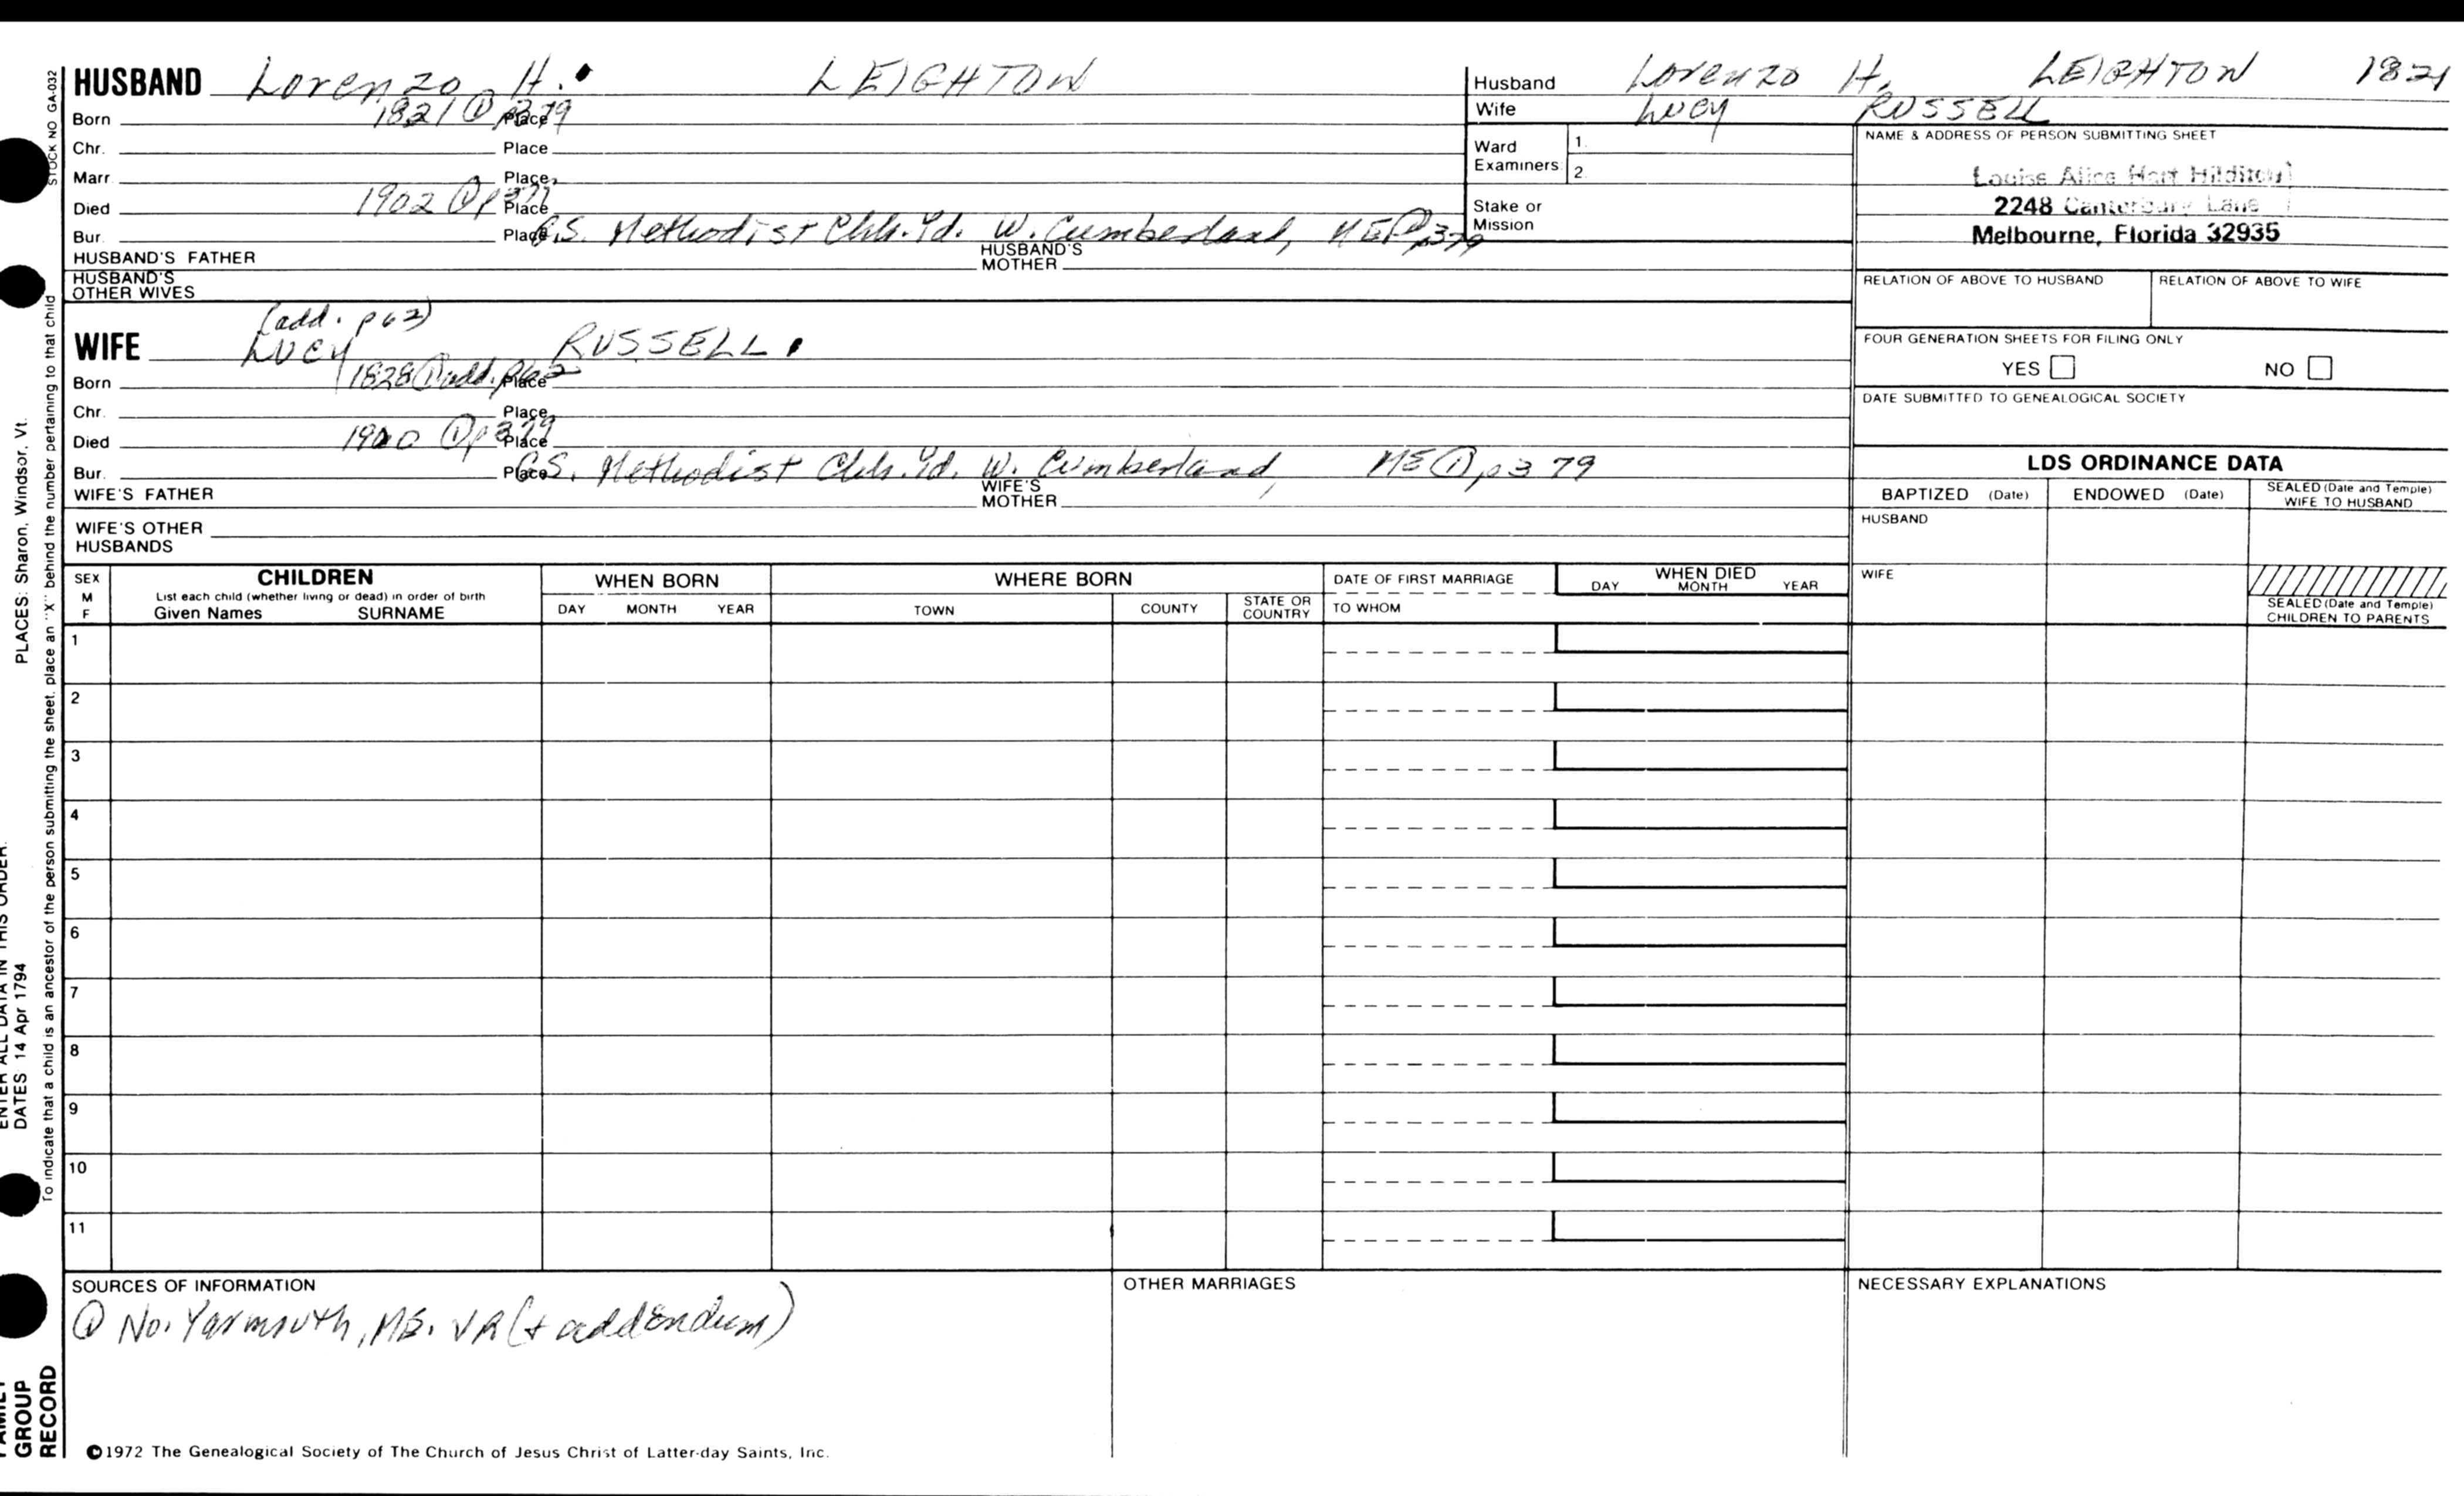 HUSBAND Lorenzo H. LEIGHTON
Born 1821 ① p379 Place
Chr. Place
Marr. Place
Died 1902 ① p379 Place
Bur. Place G.S. Methodist Chh. Yd. W. Cumberland, ME ① p379
HUSBAND'S FATHER HUSBAND'S MOTHER
HUSBAND'S OTHER WIVES
(add. p62)
WIFE Lucy RUSSELL.
Born 1828 ① add. p62 Place
Chr. Place
Died 1900 ① p379 Place
Bur. Place G.S. Methodist Chh. Yd. W. Cumberland, ME ① p379
WIFE'S FATHER WIFE'S MOTHER
WIFE'S OTHER HUSBANDS
Husband Lorenzo H. LEIGHTON 1821
Wife Lucy RUSSELL
Ward Examiners 1. 2.
Stake or Mission
NAME & ADDRESS OF PERSON SUBMITTING SHEET
Louise Alice Hart Hilditch
2248 Canterbury Lane
Melbourne, Florida 32935
RELATION OF ABOVE TO HUSBAND RELATION OF ABOVE TO WIFE
FOUR GENERATION SHEETS FOR FILING ONLY
YES NO
DATE SUBMITTED TO GENEALOGICAL SOCIETY
LDS ORDINANCE DATA
BAPTIZED (Date) ENDOWED (Date) SEALED (Date and Temple) WIFE TO HUSBAND
HUSBAND
WIFE
SEALED (Date and Temple) CHILDREN TO PARENTS
SEX M F
CHILDREN
List each child (whether living or dead) in order of birth
Given Names SURNAME
WHEN BORN
DAY MONTH YEAR
WHERE BORN
TOWN COUNTY STATE OR COUNTRY
DATE OF FIRST MARRIAGE
TO WHOM
WHEN DIED
DAY MONTH YEAR
1
2
3
4
5
6
7
8
9
10
11
SOURCES OF INFORMATION
① No. Yarmouth, ME. VR (+ addendum)
OTHER MARRIAGES
NECESSARY EXPLANATIONS
©1972 The Genealogical Society of The Church of Jesus Christ of Latter-day Saints, Inc.
STOCK NO GA-032
To indicate that a child is an ancestor of the person submitting the sheet, place an "X" behind the number pertaining to that child
PLACES: Sharon, Windsor, Vt.
ENTER ALL DATA IN THIS ORDER:
DATES 14 Apr 1794
FAMILY GROUP RECORD